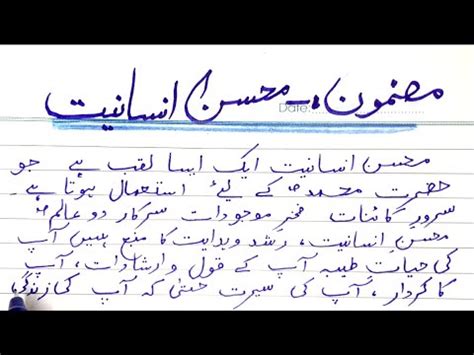 مضمون :۔ محسنِ انسانیت
Date:
محسنِ انسانیت ایک ایسا لقب ہے جو
حضرت محمدؐ کے لیٔے استعمال ہوتا ہے۔
سرورِ کائنات فخرِ موجودات سرکار دو عالمؐ
محسنِ انسانیت، رشد و ہدایت کا منبع ہیں آپ
کی حیاتِ طیبہ آپ کے قول و ارشادات، آپ
کا کردار، آپ کی سیرت حتیٰ کہ آپ کی زندگی